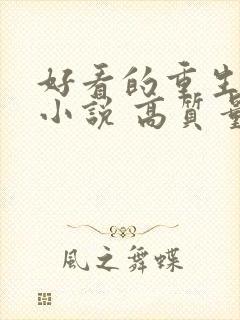 好看的重生
小說 高質量
風之舞蝶